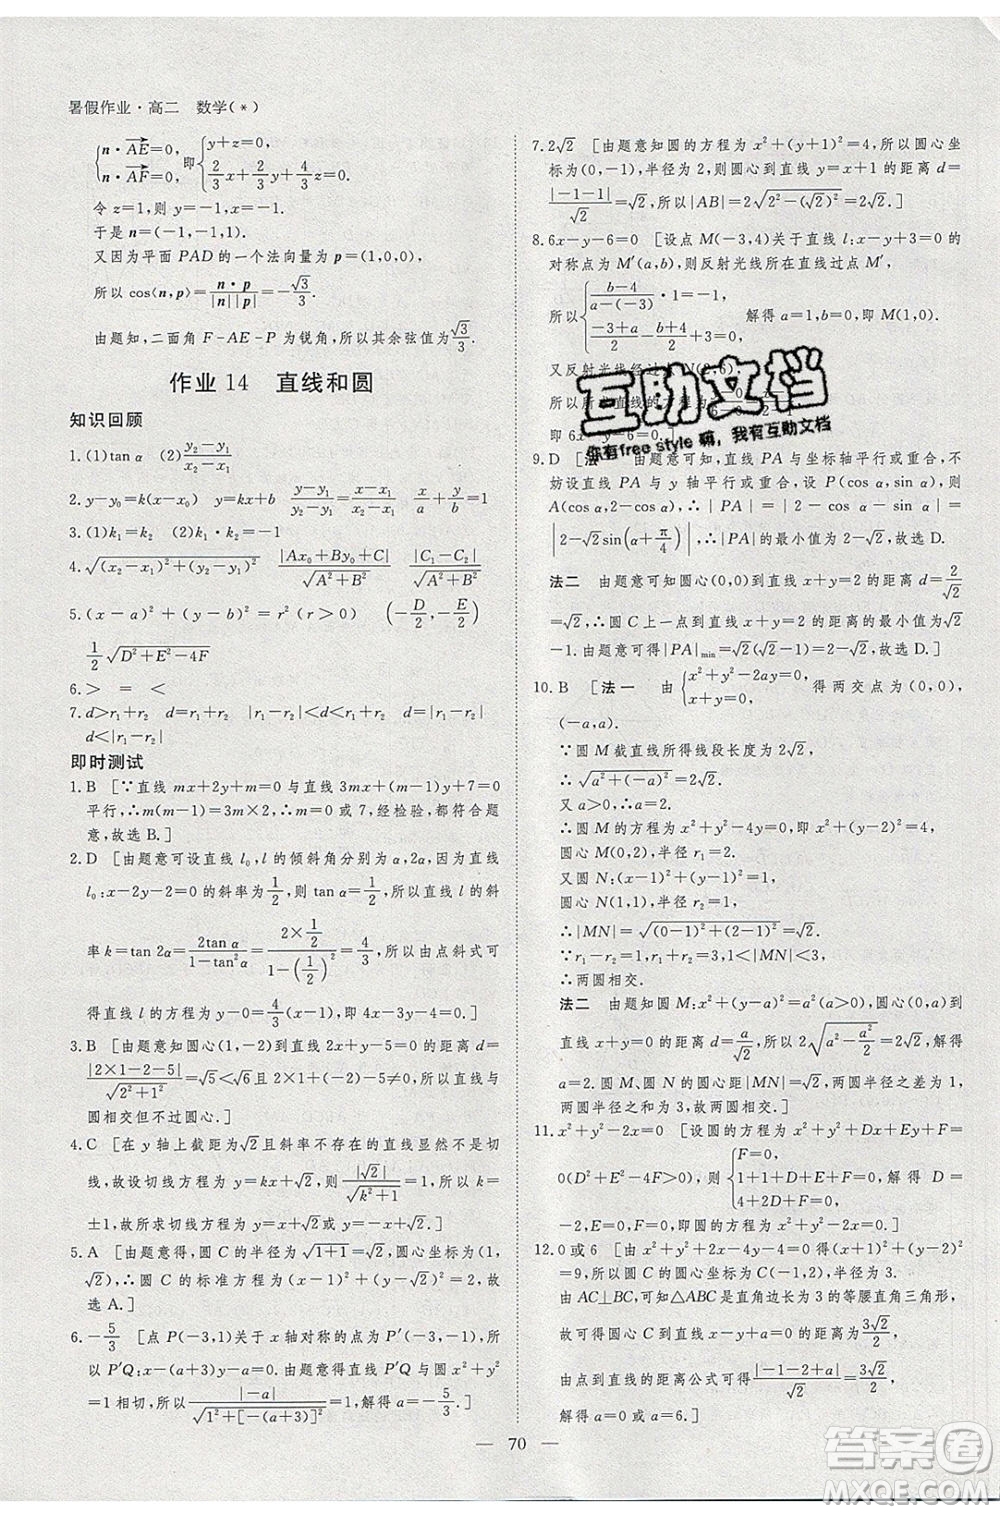 暑假作业·高二 数学(*)
{n·AE=0, n·AF=0, 即{y+z=0, 2/3x+4/3y+4/3z=0,
令 z=1,则 y=-1,x=-1.
于是 n=(-1,-1,1).
又因为平面 PAD 的一个法向量为 p=(1,0,0),
所以 cos⟨n,p⟩=n·p/|n||p|=-√3/3.
由题知,二面角 F-AE-P 为锐角,所以其余弦值为√3/3.
作业 14 直线和圆
知识回顾
1.(1)tan α (2)(y₂-y₁)/(x₂-x₁)
2.y-y₀=k(x-x₀) (y-y₁)/(y₂-y₁)=(x-x₁)/(x₂-x₁) x/a+y/b=1
3.(1)k₁=k₂ (2)k₁k₂=-1
4.√((x₂-x₁)²+(y₂-y₁)²) |Ax₀+By₀+C|/√(A²+B²) |C₁-C₂|/√(A²+B²)
5.(x-a)²+(y-b)²=r²(r>0) (-D/2,-E/2)
1/2√(D²+E²-4F)
6.> = <
7.d>r₁+r₂ d=r₁+r₂ |r₁-r₂|<d<r₁+r₂ d=|r₁-r₂|
d<|r₁-r₂|
即时测试
1.B [∵直线 mx+2y+m=0 与直线 3mx+(m-1)y+7=0
平行,∴m(m-1)=3m×2,∴m=0 或 7,经检验,都符合题
意,故选 B.]
2.D [由题意可设直线 l₀,l 的倾斜角分别为 α,2α,因为直线
l₀:x-2y-2=0 的斜率为1/2,则 tan α=1/2,所以直线 l 的斜
率 k=tan 2α=2tan α/(1-tan²α)=(2×1/2)/(1-(1/2)²)=4/3,所以由点斜式可
得直线 l 的方程为 y-0=4/3(x-1),即 4x-3y-4=0.]
3.B [由题意知圆心(1,-2)到直线 2x+y-5=0 的距离 d=
|2×1-2-5|/√(2²+1²)=√5<√6且 2×1+(-2)-5≠0,所以直线与
圆相交但不过圆心.]
4.C [在 y 轴上截距为√2且斜率不存在的直线显然不是切线,
故设切线方程为 y=kx+√2,则|√2|/√(k²+1)=1,所以 k=
±1,故所求切线方程为 y=x+√2或 y=-x+√2.]
5.A [由题意得,圆 C 的半径为√(1+1)=√2,圆心坐标为(1,
√2),∴圆 C 的标准方程为(x-1)²+(y-√2)²=2,故
选 A.]
6.-5/3 [点 P(-3,1)关于 x 轴对称的点为 P′(-3,-1),所
以直线 P′Q 的方程为 x-(a+3)y-a=0.由题意得直线 P′Q 与圆 x²+y²=1
相切,所以|-a|/√(1²+[-(a+3)]²)=1,解得 a=-5/3.]
7.2√2 [由题意知圆的方程为 x²+(y+1)²=4,所以圆心坐
标为(0,-1),半径为 2,则圆心到直线 y=x+1 的距离 d=
|-1-1|/√2=√2,所以|AB|=2√(2²-(√2)²)=2√2.]
8.6x-y-6=0 [设点 M(-3,4)关于直线 l:x-y+3=0 的
对称点为 M′(a,b),则反射光线所在直线过点 M′,
所以{(b-4)/(a-(-3))·1=-1, (-3+a)/2-(b+4)/2+3=0, 解得 a=1,b=0,即 M′(1,0).
又反射光线经过点 N(2,6),
所以所求直线的方程为
即 6x-y-6=0.]
9.D [法一 由题意可知,直线 PA 与坐标轴平行或重合,不
妨设直线 PA 与 y 轴平行或重合,设 P(cos α,sin α),则
A(cos α,2-cos α),∴|PA|=|2-cos α-sin α|=
|2-√2sin(α+π/4)|,∴|PA|的最小值为 2-√2,故选 D.
法二 由题意可知圆心(0,0)到直线 x+y=2 的距离 d=2/√2
=√2,∴圆 C 上一点到直线 x+y=2 的距离的最小值为√2
-1.由题意可得|PA|min=√2(√2-1)=2-√2,故选 D.]
10.B [法一 由{x²+y²-2ay=0, x+y=0, 得两交点为(0,0),
(-a,a).
∵圆 M 截直线所得线段长度为 2√2,
∴√(a²+(-a)²)=2√2.
又 a>0,∴a=2.
∴圆 M 的方程为 x²+y²-4y=0,即 x²+(y-2)²=4,
圆心 M(0,2),半径 r₁=2.
又圆 N:(x-1)²+(y-1)²=1,
圆心 N(1,1),半径 r₂=1,
∴|MN|=√((0-1)²+(2-1)²)=√2.
∵r₁-r₂=1,r₁+r₂=3,1<|MN|<3,
∴两圆相交.
法二 由题知圆 M:x²+(y-a)²=a²(a>0),圆心(0,a)到
直线 x+y=0 的距离 d=a/√2,所以 2√(a²-a²/2)=2√2,解得
a=2.圆 M、圆 N 的圆心距|MN|=√2,两圆半径之差为 1,
两圆半径之和为 3,故两圆相交.]
11.x²+y²-2x=0 [设圆的方程为 x²+y²+Dx+Ey+F=
0(D²+E²-4F>0),则{F=0, 1+1+D+E+F=0, 4+2D+F=0, 解得 D=
-2,E=0,F=0,故圆的方程为 x²+y²-2x=0.]
12.0 或 6 [由 x²+y²+2x-4y-4=0 得(x+1)²+(y-2)²
=9,所以圆 C 的圆心坐标为 C(-1,2),半径为 3.
由 AC⊥BC,可知△ABC 是直角边长为 3 的等腰直角三角形,
故可得圆心 C 到直线 x-y+a=0 的距离为3√2/2.
由点到直线的距离公式可得|-1-2+a|/√2=3√2/2,
解得 a=0 或 a=6.]
— 70 —
互助文档
你有free style 嘛,我有互助文档
答案圈
MXQE.COM